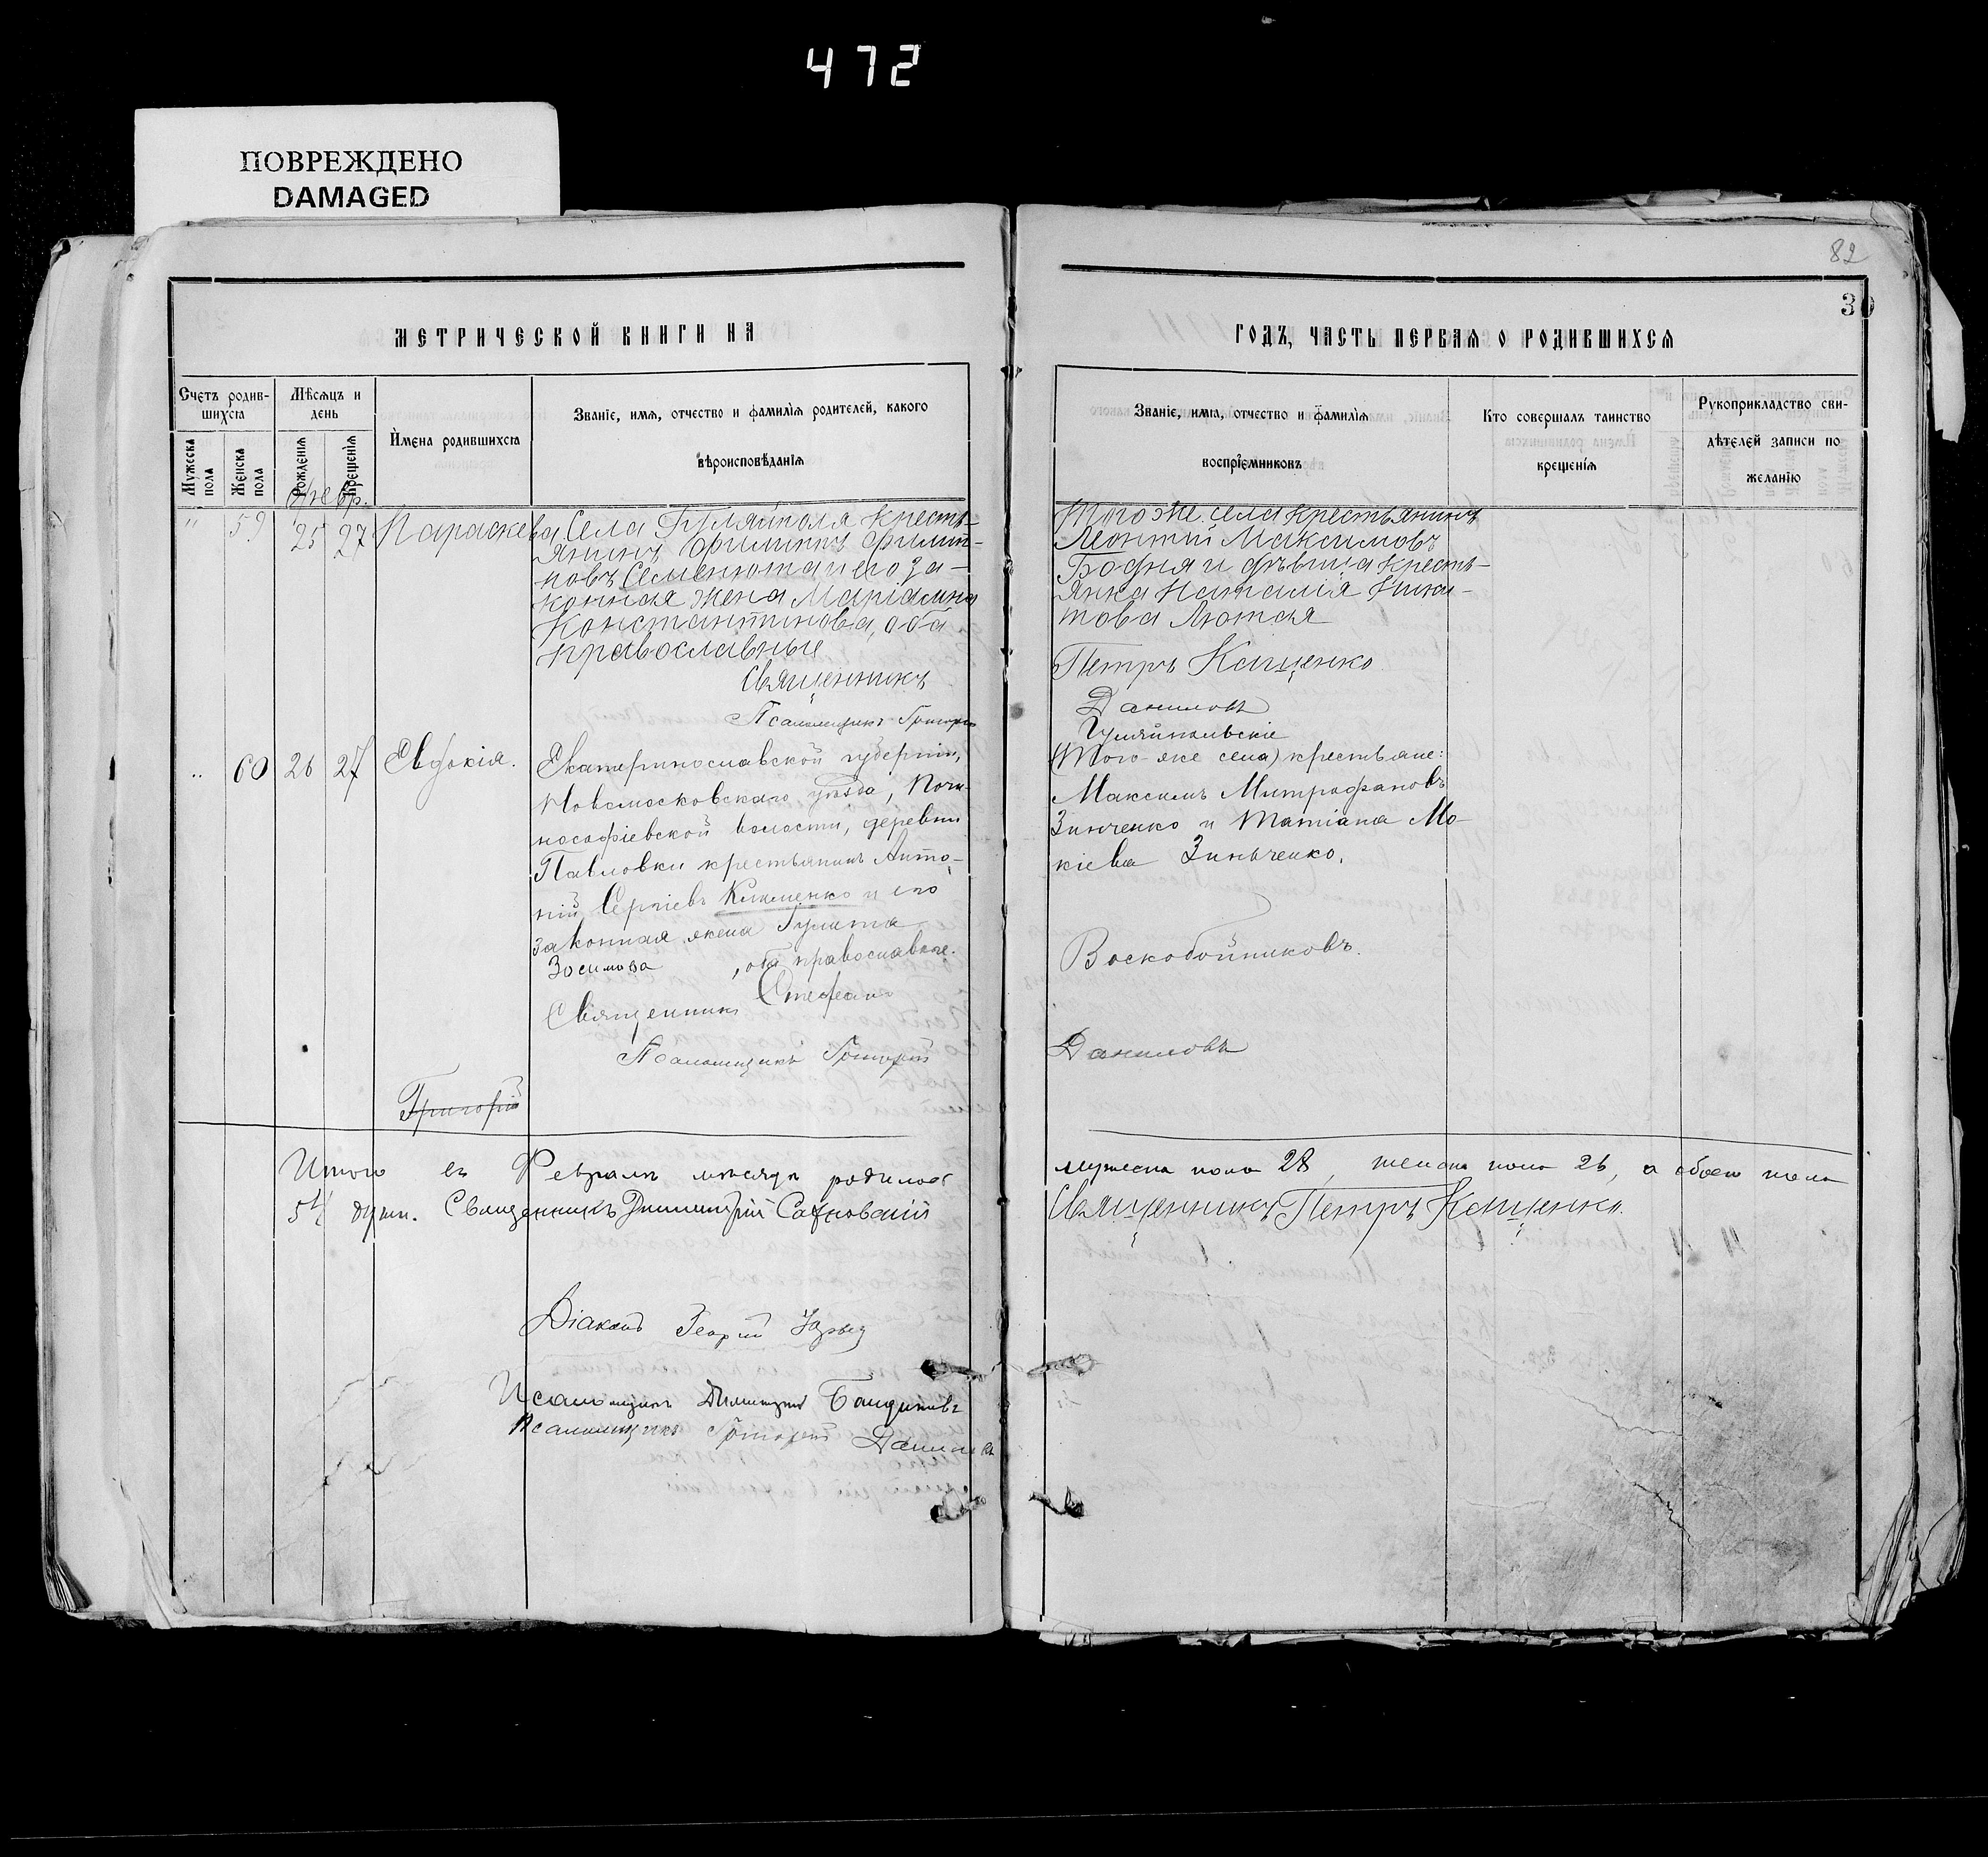 472
ПОВРЕЖДЕНО
DAMAGED
82
30
МЕТРИЧЕСКОЙ КНИГИ НА
ГОДЪ, ЧАСТЬ ПЕРВАЯ О РОДИВШИХСЯ
Счетъ родив-
шихся
Мѣсяцъ и
день
Имена родившихся
Званіе, имя, отчество и фамилія родителей, какого
вѣроисповѣданія
Мужеска
пола
Женска
пола
Рожденія
Крещенія
Званіе, имя, отчество и фамилія
воспріемниковъ
Кто совершалъ таинство
крещенія
Рукоприкладство сви-
дѣтелей записи по
желанію
Февр.
" 59 25 27 Параскева Села Гуляйполя кресть-
янинъ Филиппъ Филип-
повъ Семенюта и его за-
конная жена Маріамна
Константинова, оба
православные
Священникъ
Псаломщикъ Григорій
Того же села крестьянинъ
Леонтій Максимовъ
Бодня и дѣвица кресть-
янка Наталія Ники-
това Лютая
Петръ Кащенко
Даниловъ
" 60 26 27 Евдокія. Екатеринославской губерніи,
Новомосковскаго уѣзда,
волости, деревни
Павловки крестьянинъ Анто-
ній Сергіевъ Клименко и его
законная жена Гулита
Зосимова , оба православные.
Священникъ Стефанъ
Псаломщикъ Григорій
Григорій
Гуляйпольскіе
(Того же села) крестьяне:
Максимъ Митрофановъ
Зинченко и Татіана Мо-
кіева Зинченко.
Воскобойниковъ.
Даниловъ
Итого въ Февралѣ мѣсяцѣ родилось
мужеска пола 28, женска пола 26, а обоего пола
54 душ. Священникъ Димитрій Сахновскій
Священникъ Петръ Кащенко.
Діаконъ Георгій
Псаломщикъ Димитрій
Псаломщикъ Григорій Даниловъ